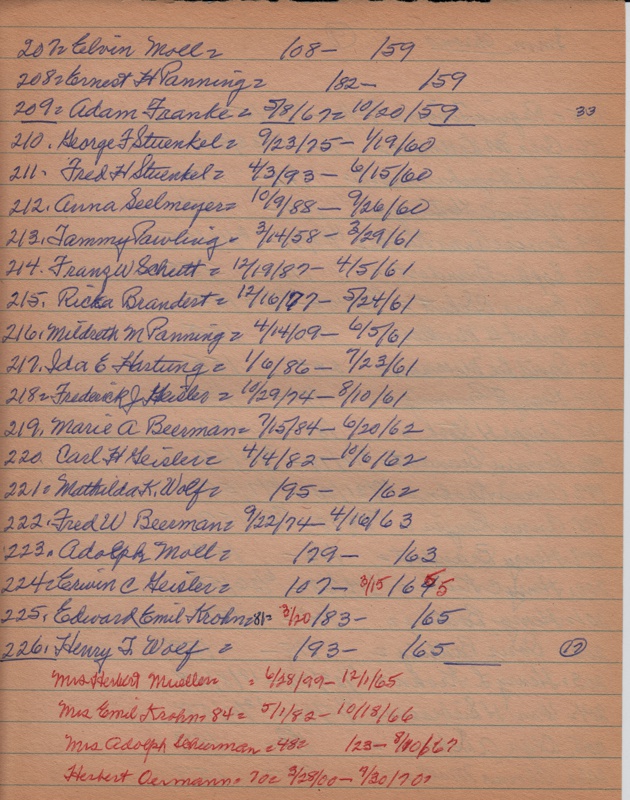 207= Elvin Moll = /08- /59
208= Ernest H Panning = /82- /59
209= Adam Franke = 5/8/67= 10/20/59 33
210. George F Stuenkel = 9/23/75- 1/19/60
211. Fred H Stuenkel = 4/3/93- 6/15/60
212. Anna Seelmeyer= 10/9/88- 9/26/60
213. Tammy Pawling = 3/14/58- 3/29/61
214. Franz W Schutt = 12/19/87- 4/5/61
215. Ricka Brandest = 12/16/77- 5/24/61
216. Mildreth M Panning = 4/14/09- 6/5/61
217. Ida E Hartung = 1/6/86- 7/23/61
218= Frederick J Heisler = 10/29/74- 8/10/61
219. Marie A Beerman= 7/15/84- 6/20/62
220. Carl H Geisler= 4/4/82- 10/6/62
221= Mathilda K. Wolf= /95- /62
222. Fred W Beerman= 9/22/74- 4/16/63
223. Adolph Moll = /79- /63
224= Erwin C Geisler = /07- 3/15/65
225. Edward Emil Krohn=81= 3/20/83- /65
226. Henry F. Wolf = /93- /65 17
Mrs Herbert Mueller= 6/28/99- 12/1/65
Mrs Emil Krohn= 84= 5/1/82- 10/18/66
Mrs Adolph = 48= /23- /67
Herbert Oermann= 70= 3/28/00- 7/30/70=